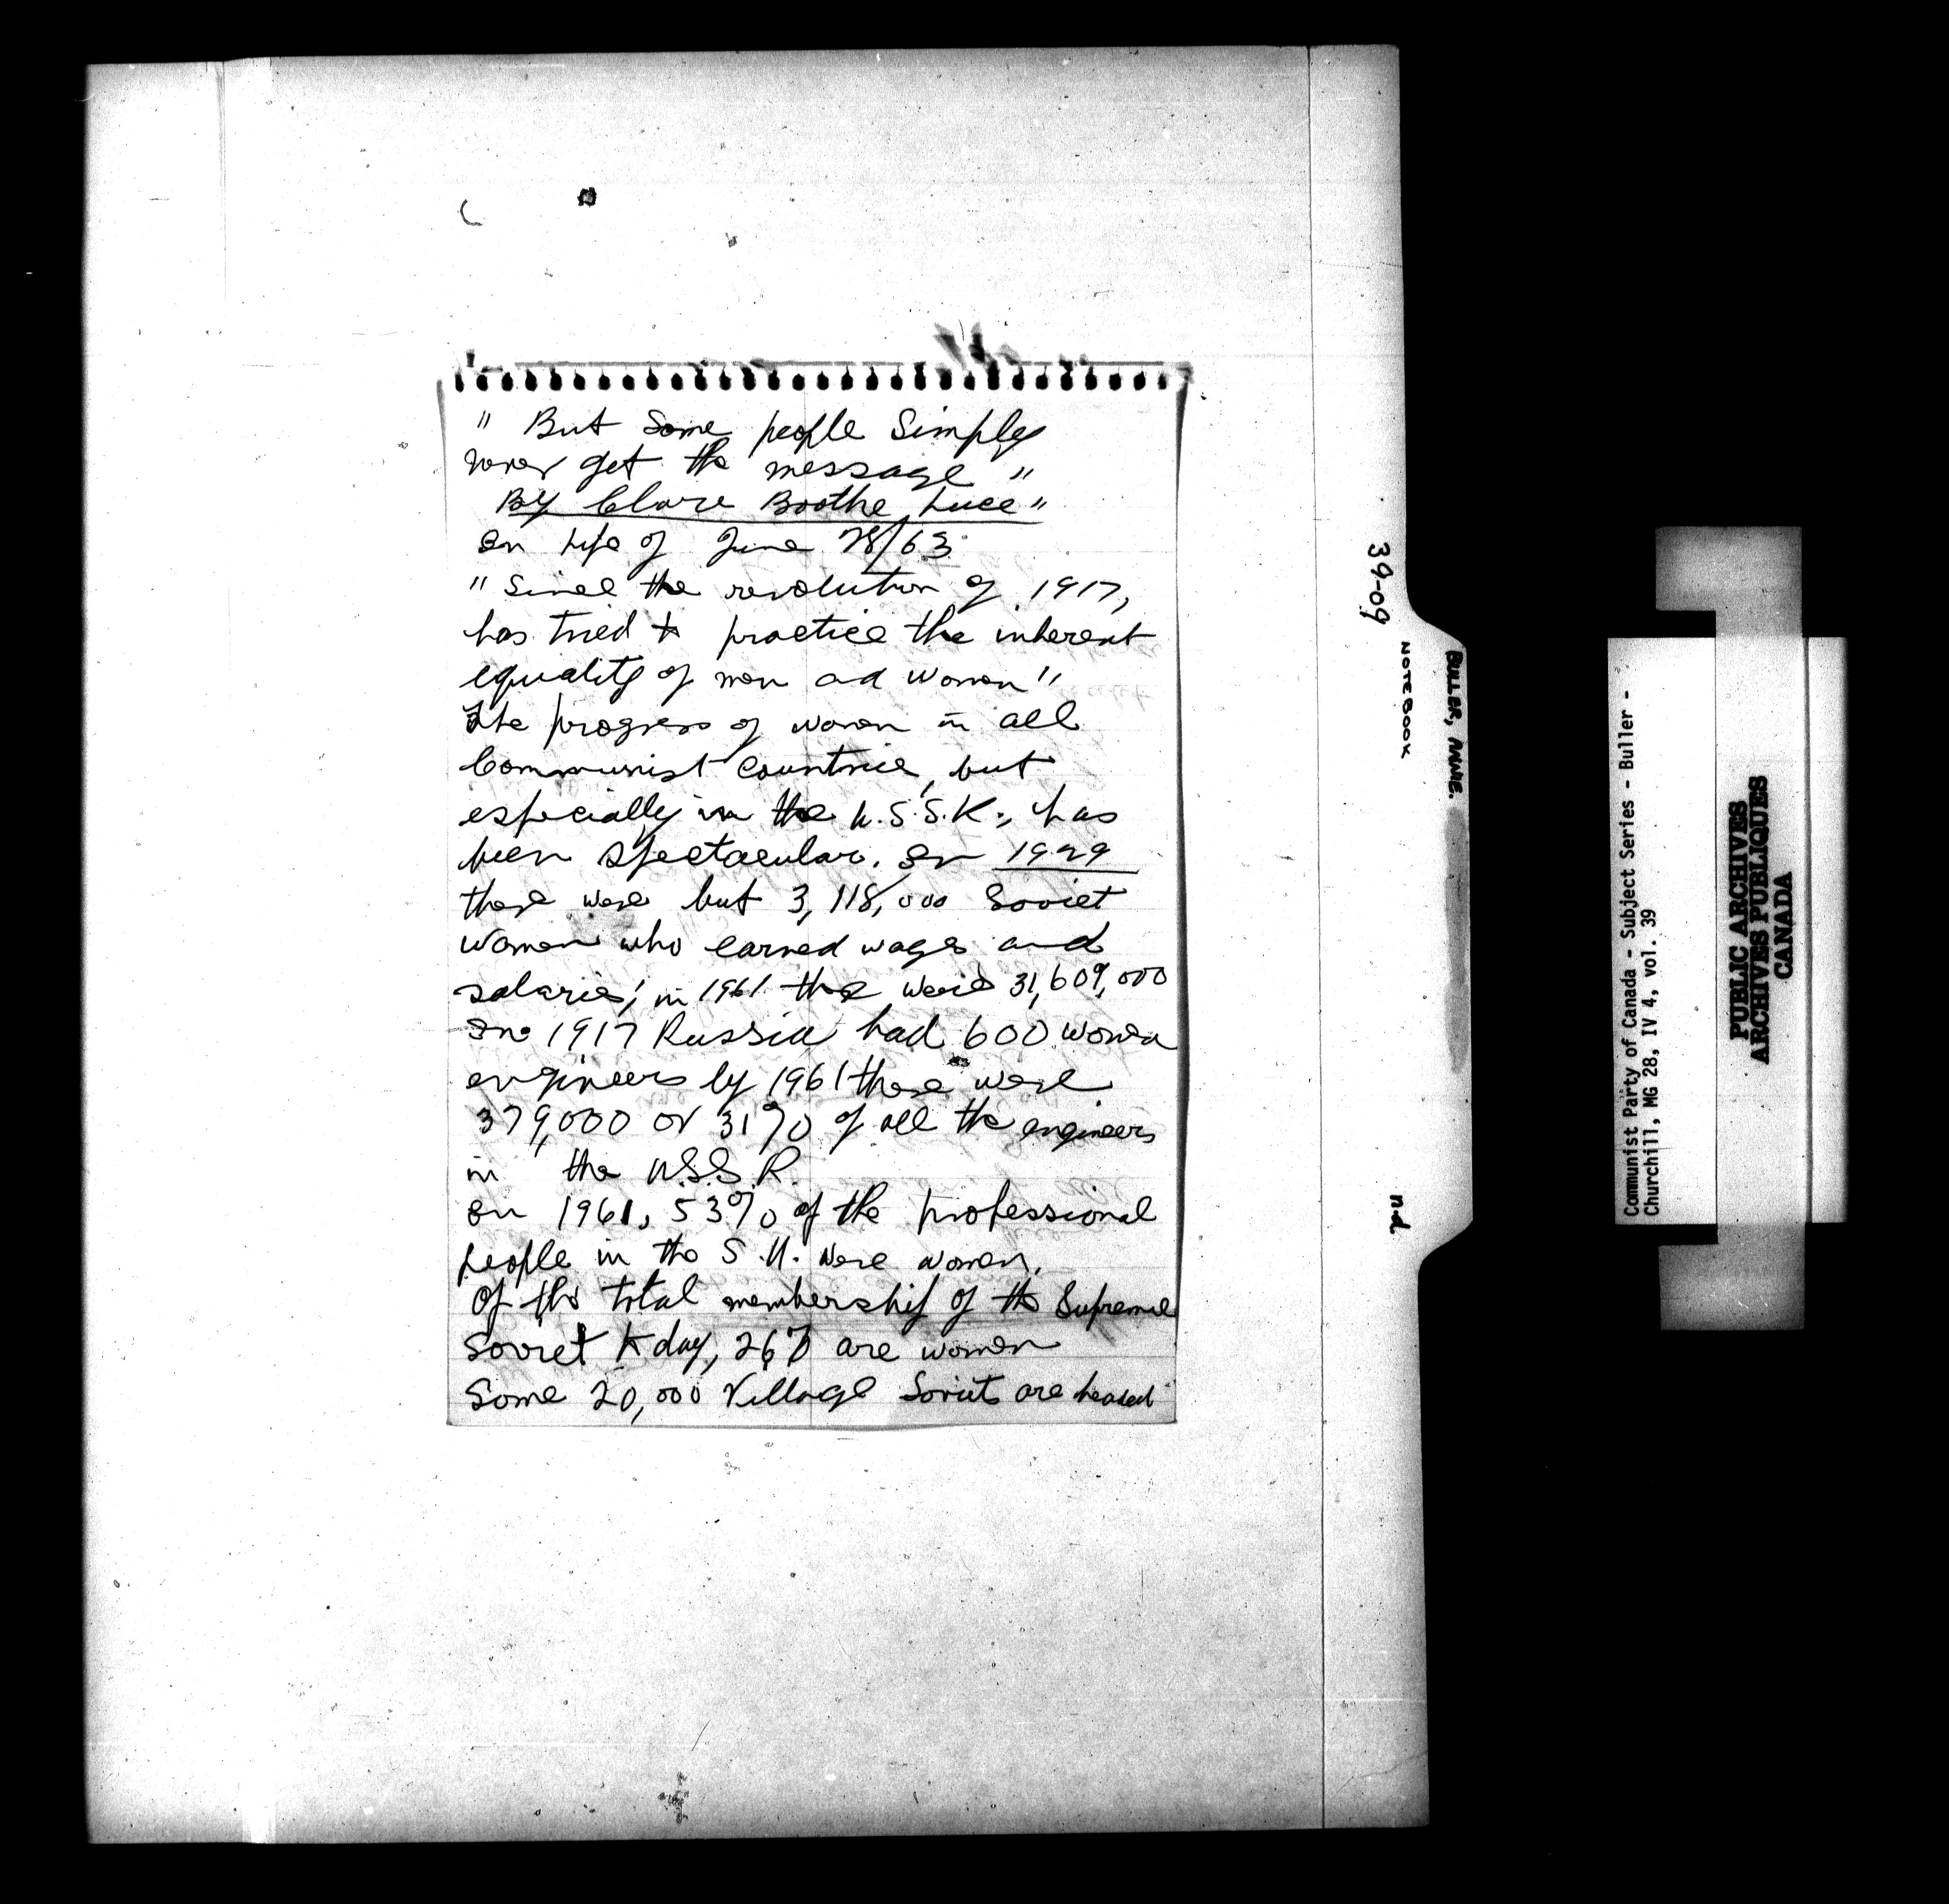 " But Some people Simply
never get the message "
By Clare Boothe Luce"
In Life of June 28/63
" Since the revolution of 1917,
has tried to practice the inherent
equality of men and women"
The progress of women in all
Communist countries, but
especially in the U.S.S.R., has
been spectacular. In 1929
there were but 3,118,000 Soviet
women who earned wages and
salaries; in 1961 there were 31,609,000
In 1917 Russia had 600 women
engineers by 1961 there were
379,000 or 31% of all the engineers
in the U.S.S.R.
In 1961, 53% of the professional
people in the S.U. were women.
Of the total membership of the Supreme
Soviet today, 26% are women
Some 20,000 Village Soviets are headed
39-09
NOTEBOOK
n.d.
BULLER, ANNIE.
Communist Party of Canada - Subject Series - Buller -
Churchill, MG 28, IV 4, vol. 39
PUBLIC ARCHIVES
ARCHIVES PUBLIQUES
CANADA